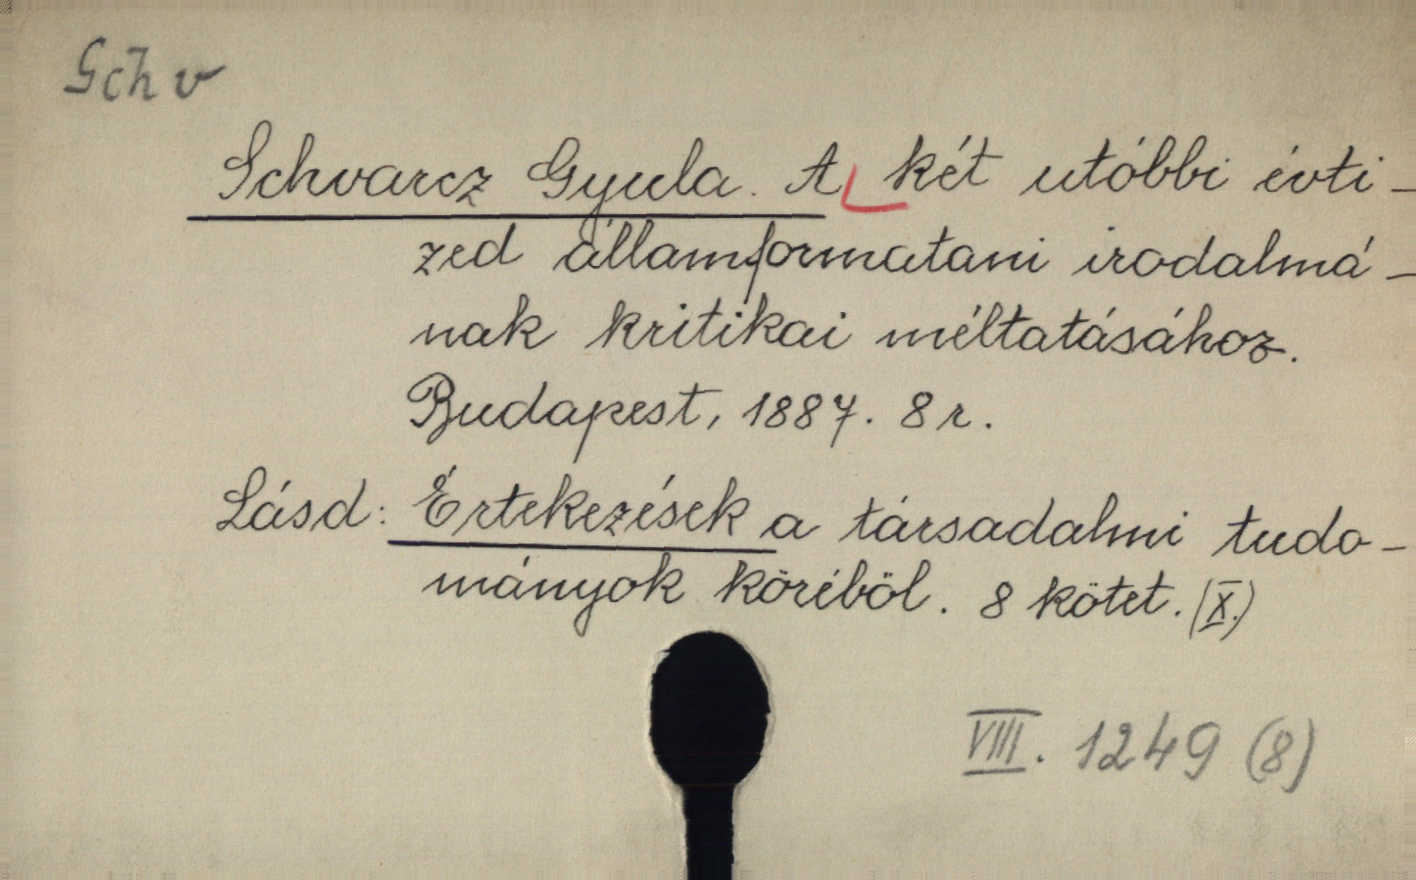 Schv
Schvarcz Gyula. A két utóbbi évti-
zed államformatani irodalmá-
nak kritikai méltatásához.
Budapest, 1887. 8 r.
Lásd: Értekezések a társadalmi tudo-
mányok köréböl. 8 kötet. (X.)
VIII. 1249 (8)